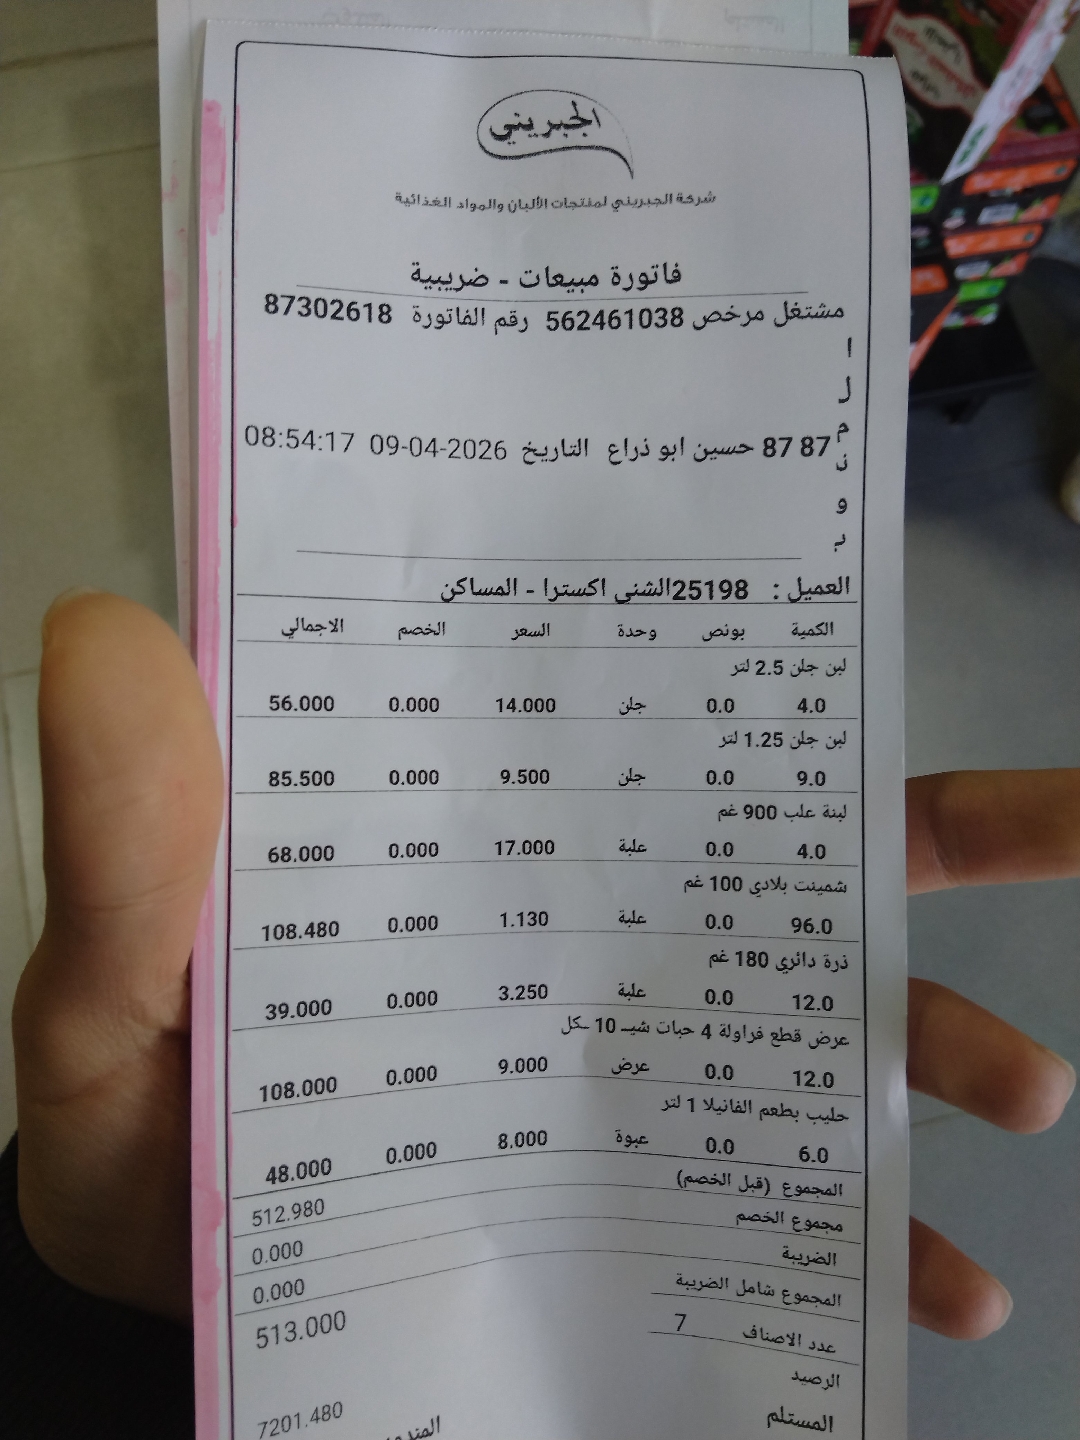 الجبريني
شركة الجبريني لمنتجات الألبان والمواد الغذائية
فاتورة مبيعات - ضريبية
مشتغل مرخص 562461038 رقم الفاتورة 87302618
ا
ل
م
87 87 حسين ابو ذراع التاريخ 09-04-2026 08:54:17
ن
و
ب
العميل : 25198الشني اكسترا - المساكن
الكمية بونص وحدة السعر الخصم الاجمالي
لبن جلن 2.5 لتر
4.0 0.0 جلن 14.000 0.000 56.000
لبن جلن 1.25 لتر
9.0 0.0 جلن 9.500 0.000 85.500
لبنة علب 900 غم
4.0 0.0 علبة 17.000 0.000 68.000
شمينت بلادي 100 غم
96.0 0.0 علبة 1.130 0.000 108.480
ذرة دائري 180 غم
12.0 0.0 علبة 3.250 0.000 39.000
عرض قطع فراولة 4 حبات شيـ 10 ـكل
12.0 0.0 عرض 9.000 0.000 108.000
حليب بطعم الفانيلا 1 لتر
6.0 0.0 عبوة 8.000 0.000 48.000
المجموع (قبل الخصم) 512.980
مجموع الخصم 0.000
الضريبة 0.000
المجموع شامل الضريبة 513.000
عدد الاصناف 7
الرصيد 7201.480
المستلم